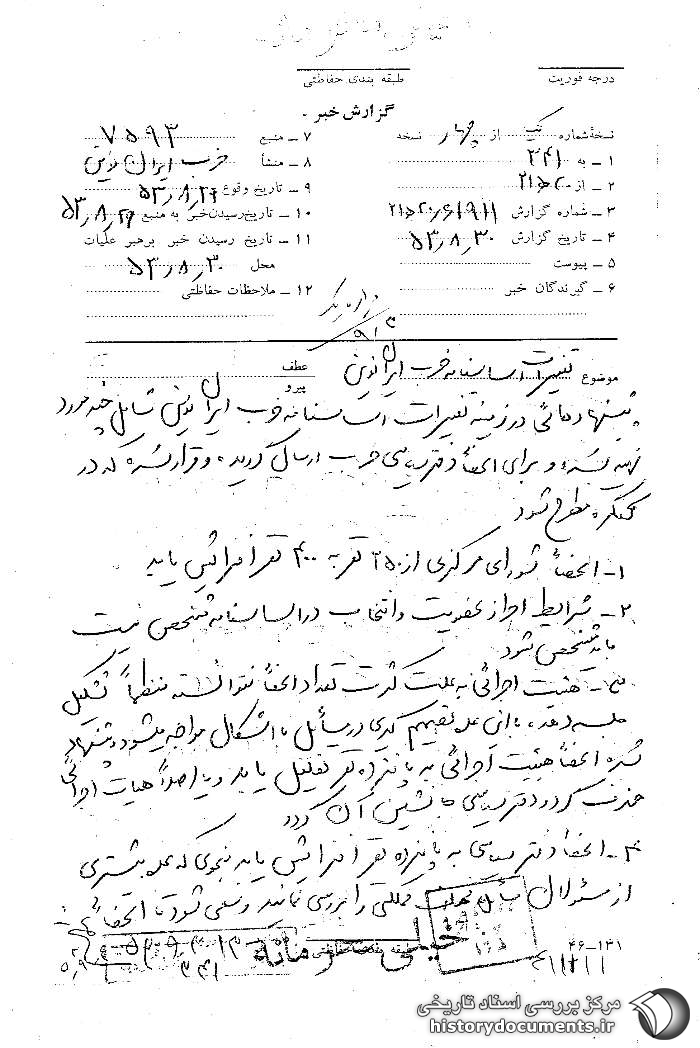 درجه فوریت
طبقه بندی حفاظتی
گزارش خبر
نسخهٔ شماره یک از چهار نسخه
۱ ـ به ۳۴۱
۲ ـ از ۲۱ه۲۰
۳ ـ شماره گزارش
۴ ـ تاریخ گزارش ۵۳٫۸٫۳۰
۵ ـ پیوست
۶ ـ گیرندگان خبر
۷ ـ منبع ۷۵۹۳
۸ ـ منشأ حزب ایران نوین
۹ ـ تاریخ وقوع
۱۰ ـ تاریخ رسیدن خبر به منبع
۱۱ ـ تاریخ رسیدن خبر برهبر عملیات
محل ۵۳٫۸٫۳۰
۱۲ ـ ملاحظات حفاظتی
موضوع تغییرات اساسنامه حزب ایران نوین
عطف
پیرو
پیشنهادهائی در زمینه تغییرات اساسنامه حزب ایران نوین شامل چند مورد
تهیه شده و برای اعضاء دفتر سیاسی حزب ارسال گردیده و قرار شده که در
کنگره مطرح شود
۱- اعضاء شورای مرکزی از ۲۵۰ نفر به ۴۰۰ نفر افزایش یابد
۲- شرایط احراز عضویت و انتخاب در اساسنامه مشخص نیست
باید مشخص شود
۳- هیئت اجرائی به علت کثرت تعداد اعضاء نتوانسته منظماً تشکیل
جلسه دهد، بااین عده تصمیم گیری در مسائل با اشکال مواجه میشود پیشنهاد
شده اعضاء هیئت اجرائی به پانزده نفر تقلیل یابد و یا اصلاً هیات اجرائی
حذف گردد و دفتر سیاسی جانشین آن گردد
۴- اعضاء دفتر سیاسی به پانزده نفر افزایش یابد بنحوی که عده بیشتری
از مسئولان مملکتی را بررسی نمایند و سعی شود تا اعضاء
خیلی محرمانه
طبقه بندی حفاظتی
۳۴۱
۴۶-۱۳۱
مرکز بررسی اسناد تاریخی
historydocuments.ir